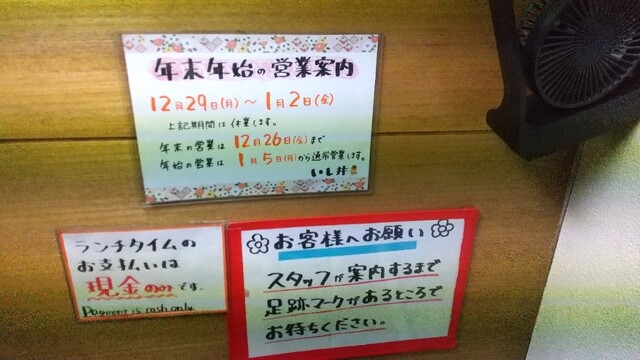 年末年始の営業案内
12月29日(月)～1月2日(金)
上記期間は休業します。
年末の営業は 12月26日(金)まで
年始の営業は 1月5日(月)から通常営業します。
いし井
ランチタイムの
お支払いは
現金のみです。
Payment is cash only
お客様へお願い
スタッフが案内するまで
足跡マークがあるところで
お待ちください。